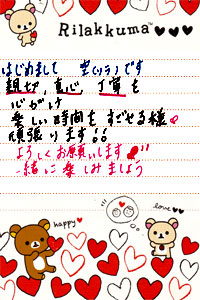 Rilakkuma™
はじめまして 空(ソラ)です
親切、真心、丁寧を
心がけ
楽しい時間をすごせる様
頑張ります!!
よろしくお願いします!!
一緒に楽しみましょう
happy
love